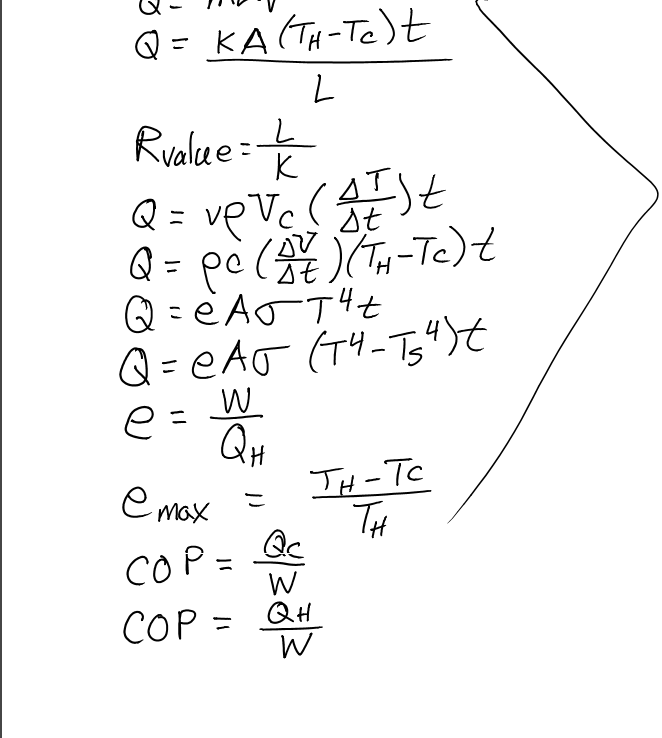 Q = KA(TH-Tc)t / L
Rvalue = L/K
Q = vρVc(ΔT/Δt)t
Q = ρc(ΔV/Δt)(TH-Tc)t
Q = eAσT⁴t
Q = eAσ(T⁴-Ts⁴)t
e = W/QH
emax = TH-Tc/TH
COP = Qc/W
COP = QH/W